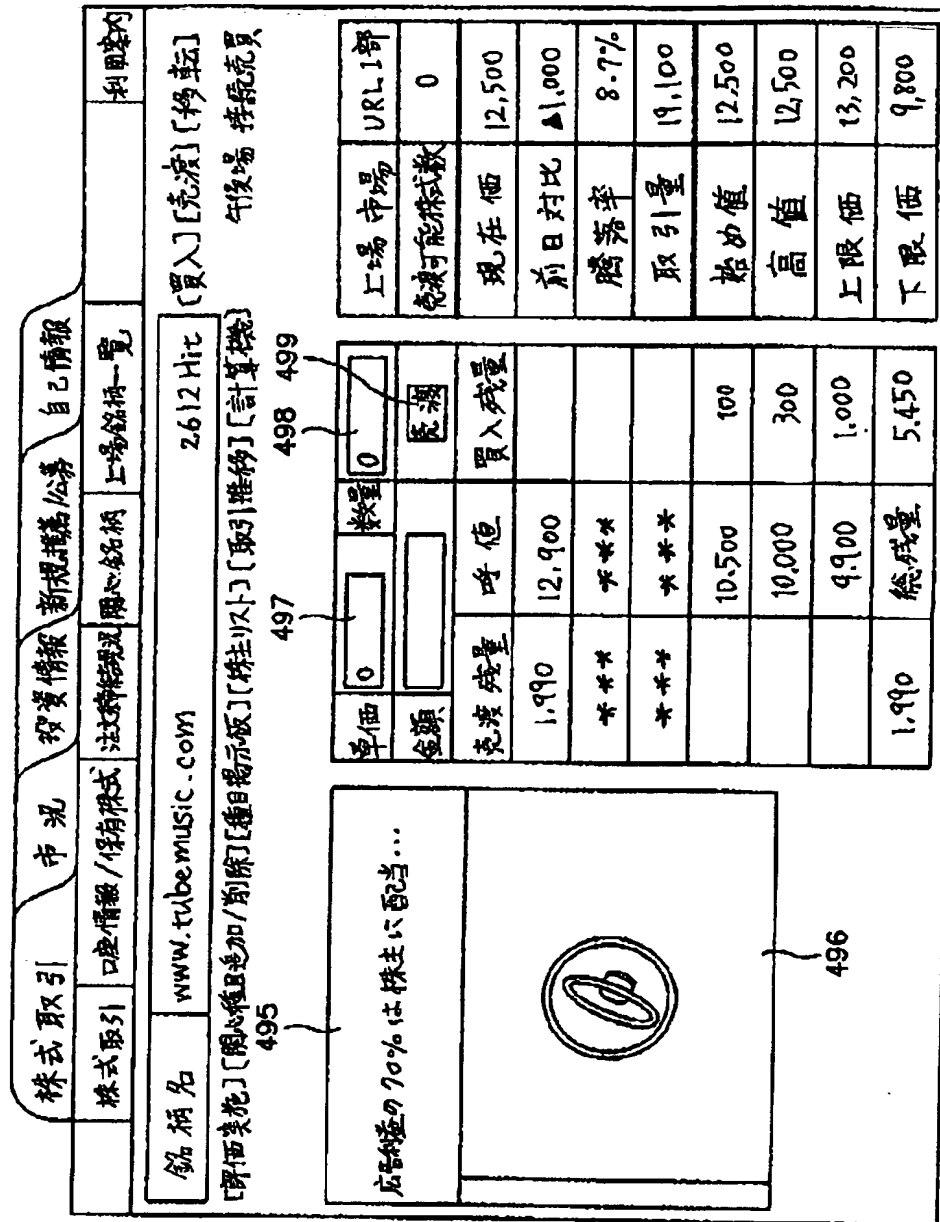 株式取引 市況 投資情報 新規推薦/公募 自己情報
株式取引 口座情報/保有株式 注文締結現況 関心銘柄 上場銘柄一覧 利用案内
銘柄名 www.tubemusic.com 2612Hit [買入][売渡][移転]
[評価実施][関心種目追加/削除][種目掲示板][株主リスト][取引推移][計算機] 午後場 接続売買
495 497 498 499
広告利益の70%は株主に配当...
496
単価 0 数量 0
金額 売渡
売渡残量 呼値 買入残量
1,990 12,900
*** ***
*** ***
10.500 100
10,000 300
9.900 1.000
1,990 総残量 5.450
上場市場 URL1部
売渡可能株式数 0
現在価 12,500
前日対比 ▲1,000
騰落率 8.7%
取引量 19,100
始め値 12,500
高値 12,500
上限価 13,200
下限価 9,800